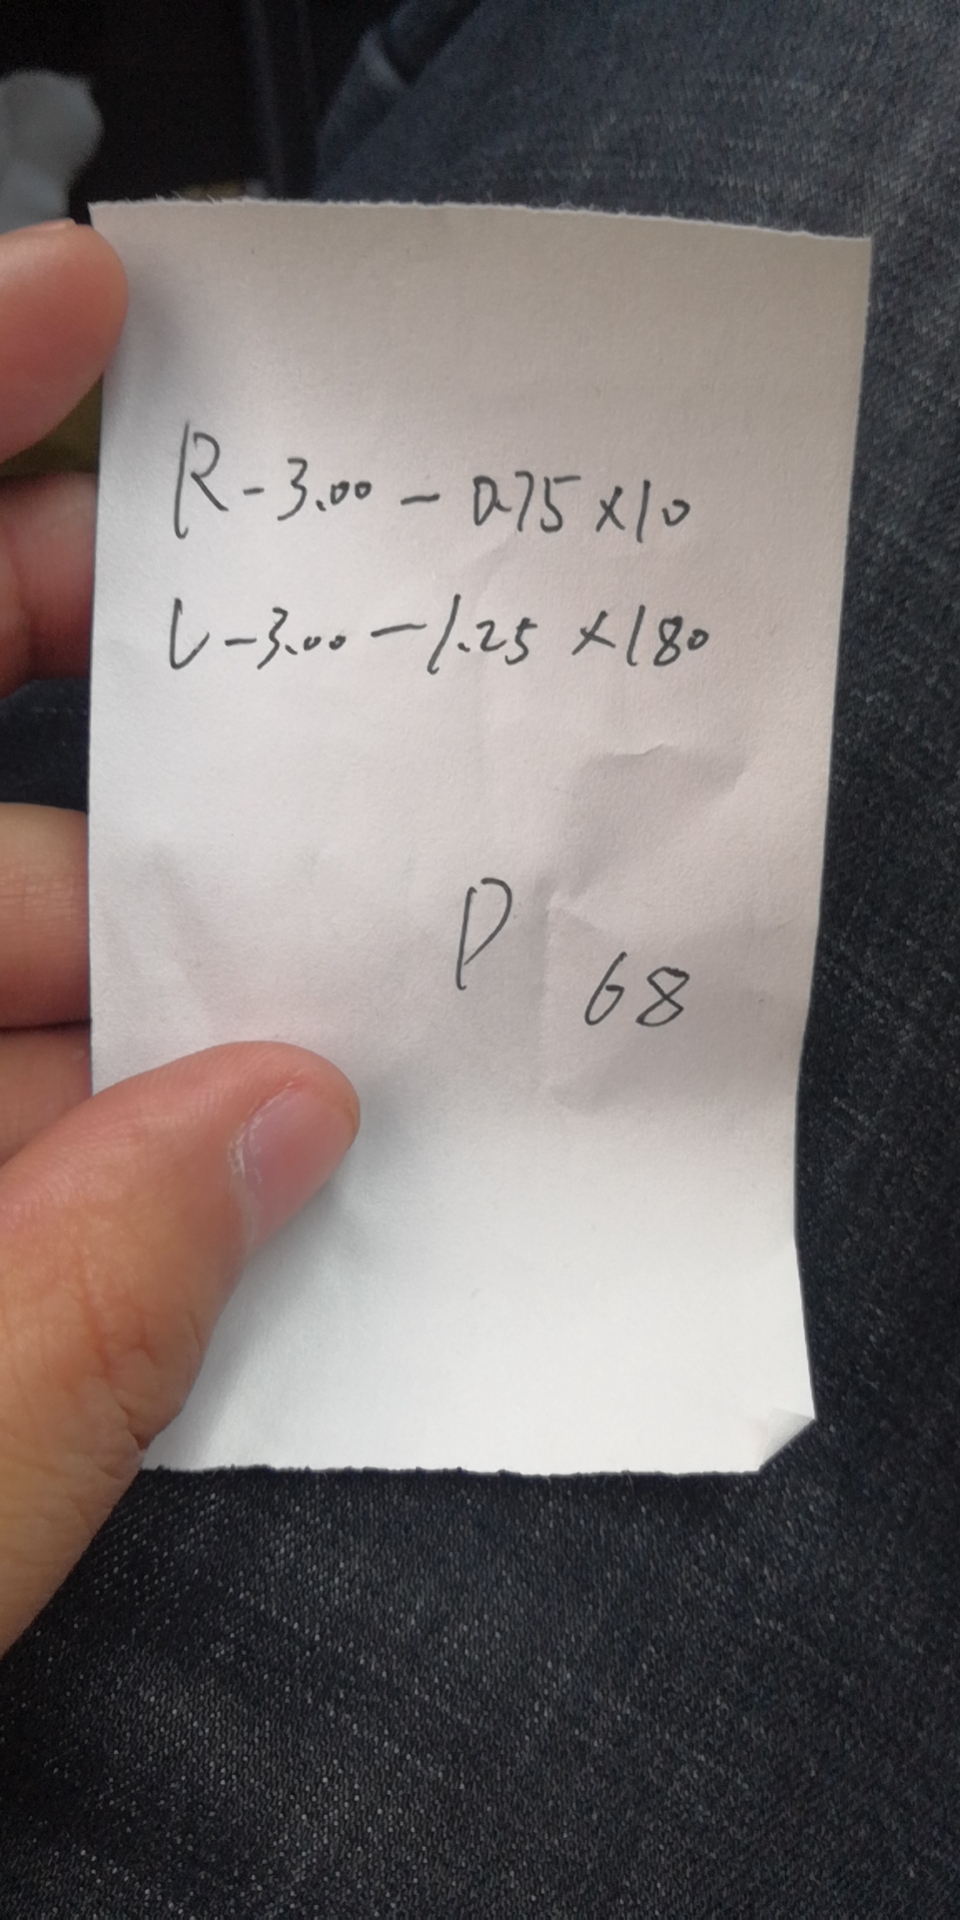 R -3.00 - 0.75 ×10
L -3.00 - 1.25 ×180
P 68